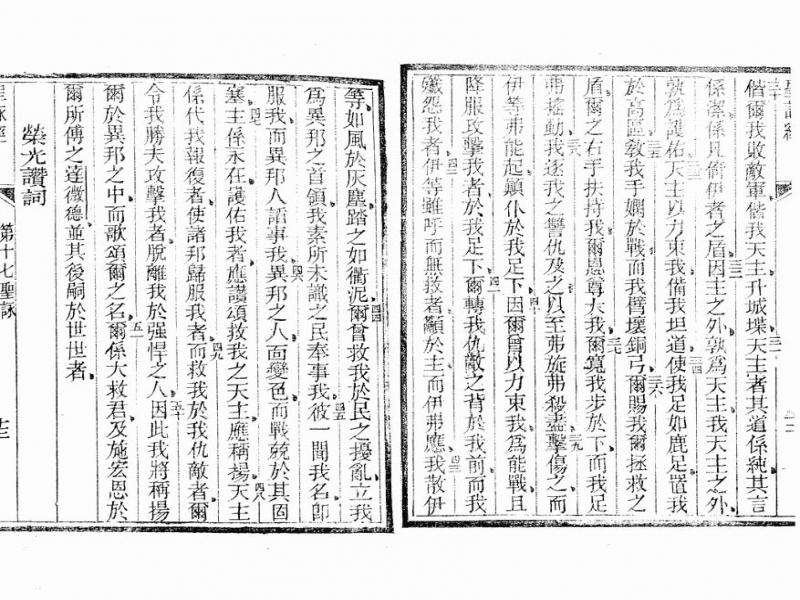 偕爾我敗敵軍偕我天主升城堞天主者其道係純其言
係潔係凡倚伊者之盾因主之外孰爲天主我天主之外
孰爲護佑天主以力束我備我坦道使我足如鹿足置我
於高區敎我手嫺於戰而我臂壞銅弓爾賜我爾拯救之
盾爾之右手扶持我爾恩尊大我爾寬我步於下而我足
弗搖動我逐我之讐仇及之以至弗旋弗殺盡擊傷之而
伊等弗能起顚仆於我足下因爾曾以力束我爲能戰且
降服攻擊我者於我足下爾轉我仇敵之背於我前而我
殲怨我者伊等雖呼而無救者籲於主而伊弗應我散伊
等如風於灰塵踏之如衢泥爾曾救我於民之擾亂立我
爲異邦之首領我素所未識之民奉事我彼一聞我名卽
服我而異邦人諂事我異邦之人面變色而戰兢於其固
塞主係永在護佑我者應讚頌救我之天主應稱揚天主
係代我報復者使諸邦歸服我者而救我於我仇敵者爾
令我勝夫攻擊我者脫離我於强悍之人因此我將稱揚
爾於異邦之中而歌頌爾之名爾係大救君及施宏恩於
爾所傅之達微德並其後嗣於世世者
榮光讚詞
聖詠經 第十七聖詠